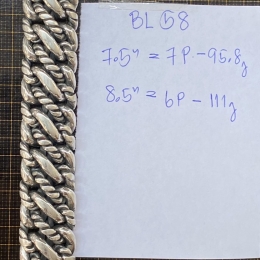 BL 58
7.5" = 7P - 95.8g
8.5" = 6P - 111g